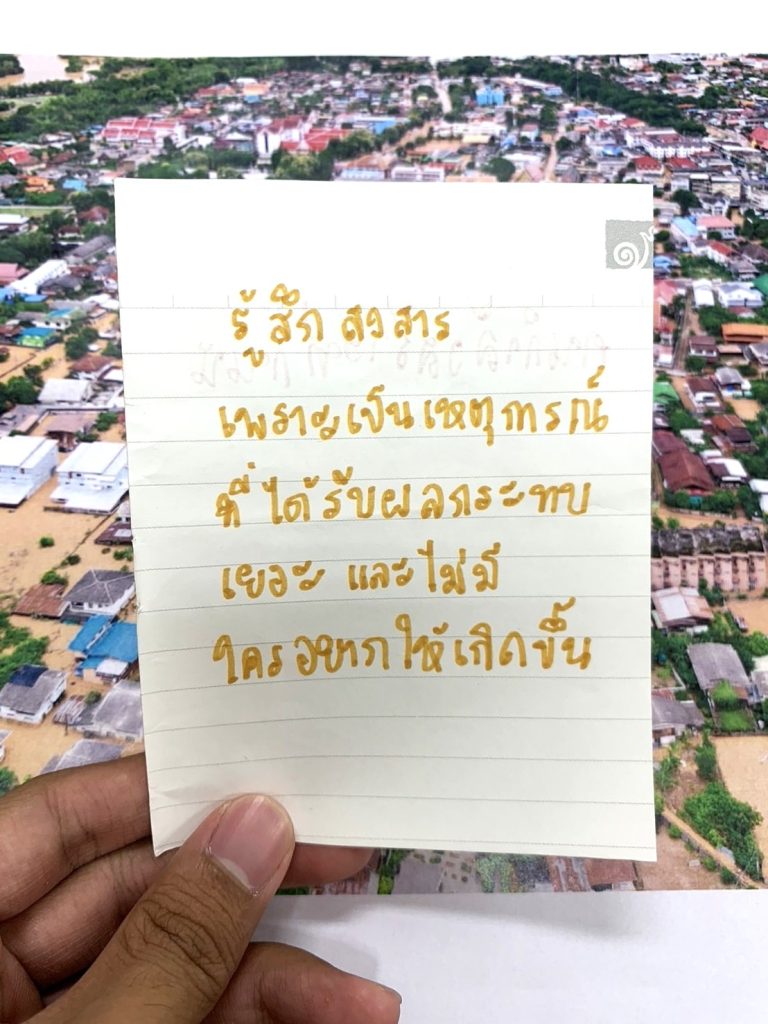 รู้สึกสงสาร
เพราะเป็นเหตุการณ์
ที่ได้รับผลกระทบ
เยอะ และไม่มี
ใครอยากให้เกิดขึ้น